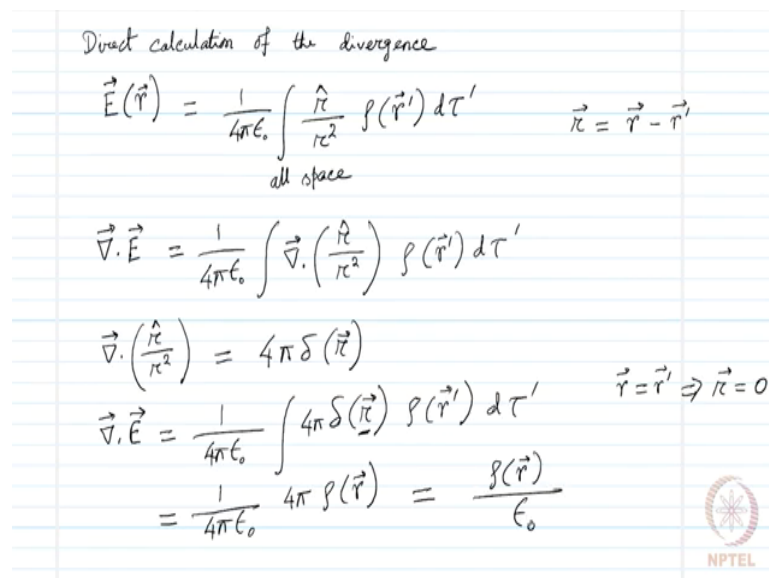 Direct calculation of the divergence
$\vec{E}(\vec{r}) = \frac{1}{4\pi\epsilon_0} \int_{\text{all space}} \frac{\hat{𝓇}}{𝓇^2} \rho(\vec{r}') d\tau'$ $\vec{𝓇} = \vec{r} - \vec{r}'$
$\vec{\nabla}.\vec{E} = \frac{1}{4\pi\epsilon_0} \int \vec{\nabla}.\left(\frac{\hat{𝓇}}{𝓇^2}\right) \rho(\vec{r}') d\tau'$
$\vec{\nabla}.\left(\frac{\hat{𝓇}}{𝓇^2}\right) = 4\pi\delta(\vec{𝓇})$
$\vec{\nabla}.\vec{E} = \frac{1}{4\pi\epsilon_0} \int 4\pi\delta(\vec{𝓇}) \rho(\vec{r}') d\tau'$ $\vec{r} = \vec{r}' \Rightarrow \vec{𝓇} = 0$
$= \frac{1}{4\pi\epsilon_0} 4\pi \rho(\vec{r}) = \frac{\rho(\vec{r})}{\epsilon_0}$
NPTEL